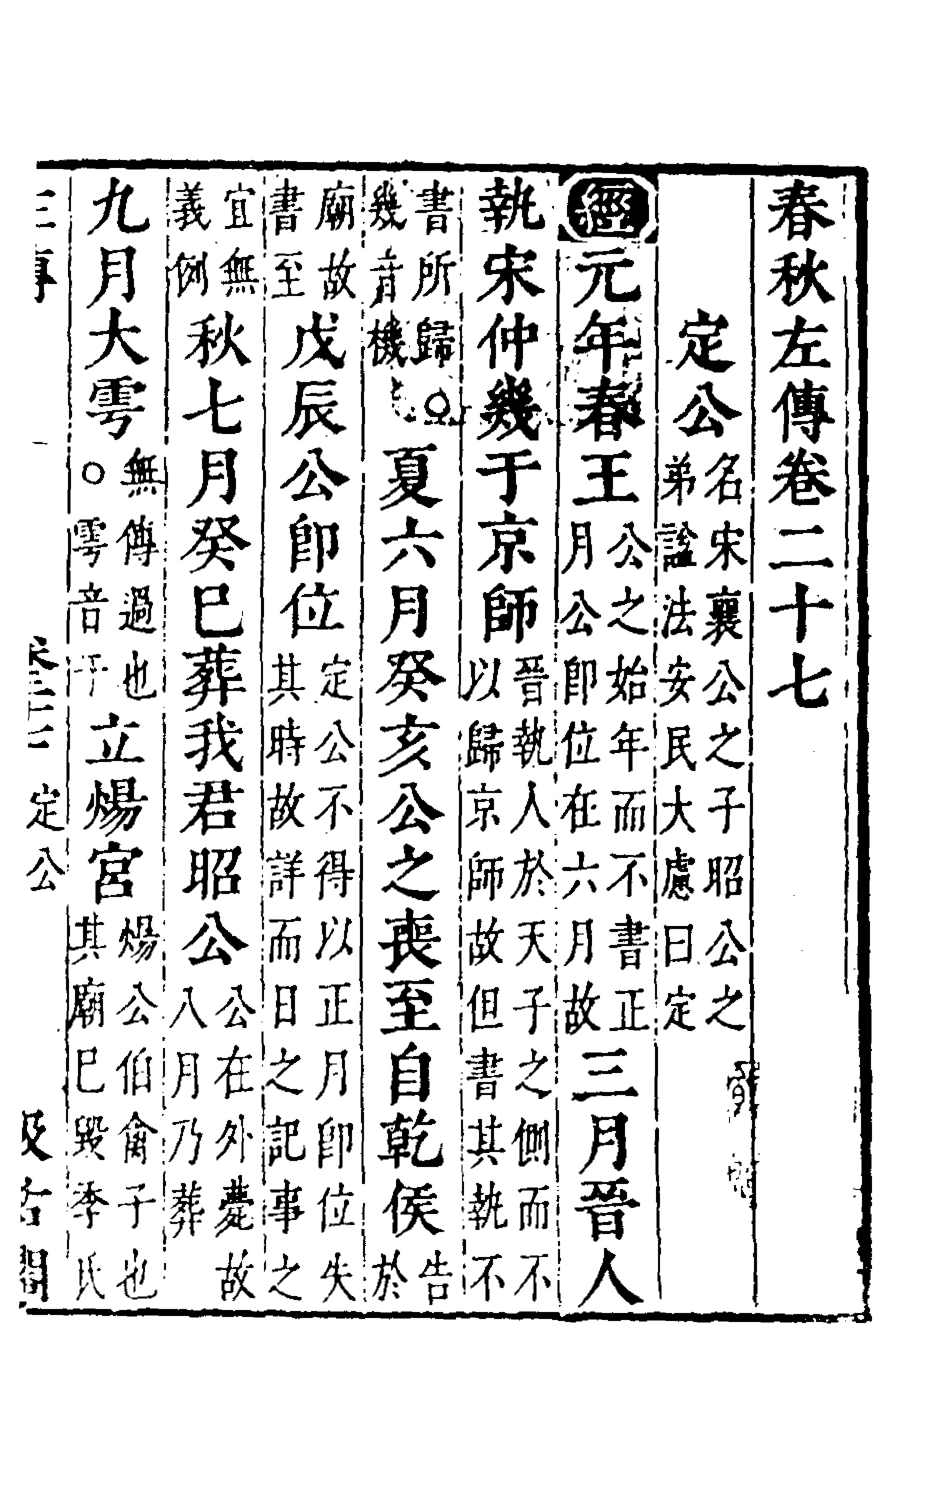 春秋左傳卷二十七
定公名宋襄公之子昭公之弟諡法安民大慮曰定
經元年春王公之始年而不書正月公卽位在六月故三月晉人
執宋仲幾于京師晉執人於天子之側而不以歸京師故但書其執不
書所歸○幾音機夏六月癸亥公之喪至自乾侯告於
廟故書至戊辰公卽位定公不得以正月卽位失其時故詳而日之記事之
宜無義例秋七月癸巳葬我君昭公公在外薨故八月乃葬
九月大雩無傳過也○雩音于立煬宮煬公伯禽子也其廟巳毀季氏
定公